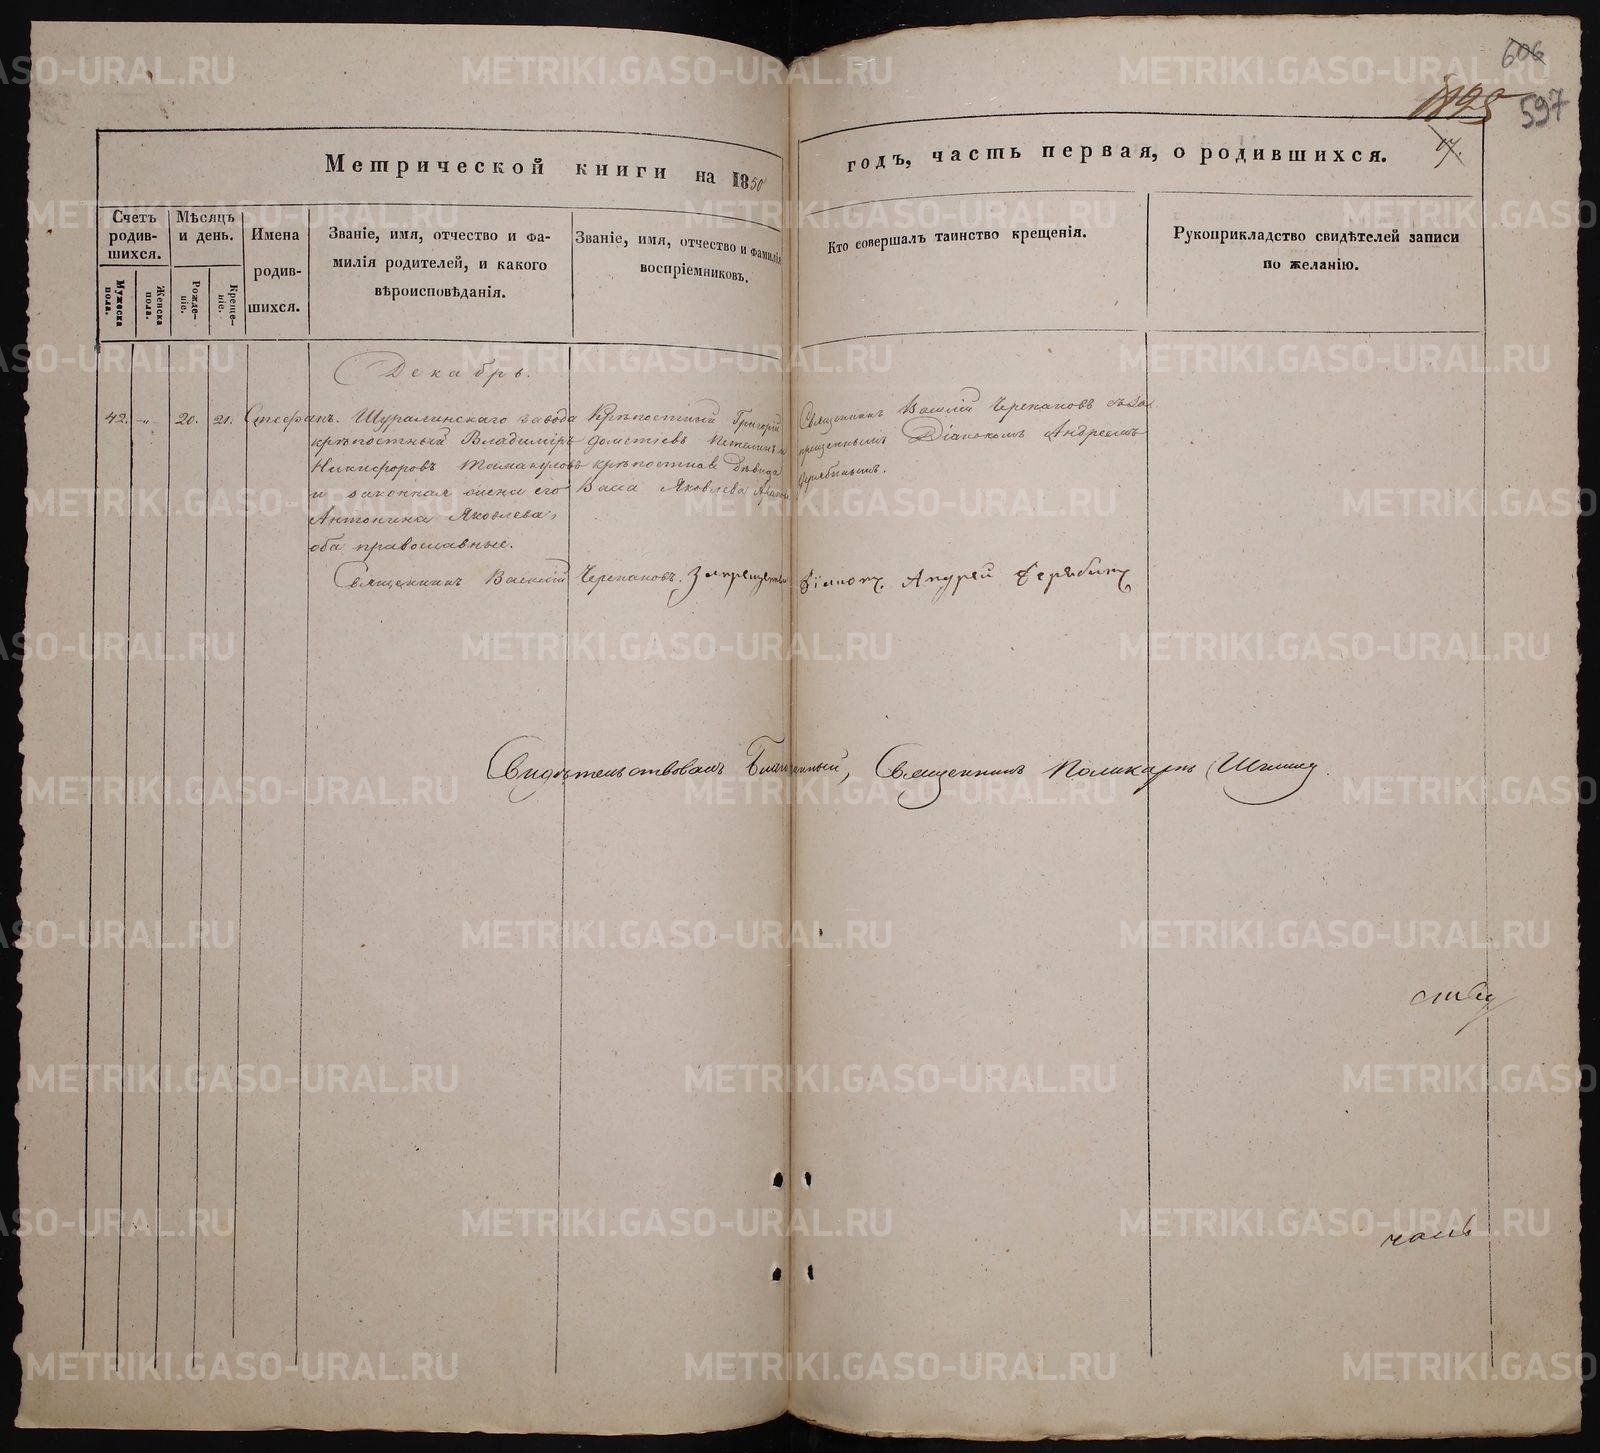 606
1825
597
17.
Метрической книги на 1850 годъ, часть первая, о родившихся.
Счетъ родив-шихся.
Мужеска пола.
Женска пола.
Мѣсяцъ и день.
Рожде-ніе.
Креще-ніе.
Имена родив-шихся.
Званіе, имя, отчество и фа-
милія родителей, и какого
вѣроисповѣданія.
Званіе, имя, отчество и фамилія
воспріемниковъ.
Кто совершалъ таинство крещенія.
Рукоприкладство свидѣтелей записи
по желанію.
Декабрь.
42. „ 20. 21. Стефанъ.
Шуралинскаго завода
крѣпостный Владимiръ
Никифоровъ Томакуловъ
и законная жена его
Антонина Яковлева,
оба православные.
Крѣпостный Григорій
крѣпостная дѣвица
Васса Яковлева
Священникъ Василій Черепановъ съ За
прещеннымъ Діакономъ Андреемъ
Дерябинымъ.
Священникъ Василій Черепановъ. Запрещенный Діаконъ Андрей Дерябинъ
Свидѣтельствовалъ Благочинный, Священникъ Поликарпъ
METRIKI.GASO-URAL.RU